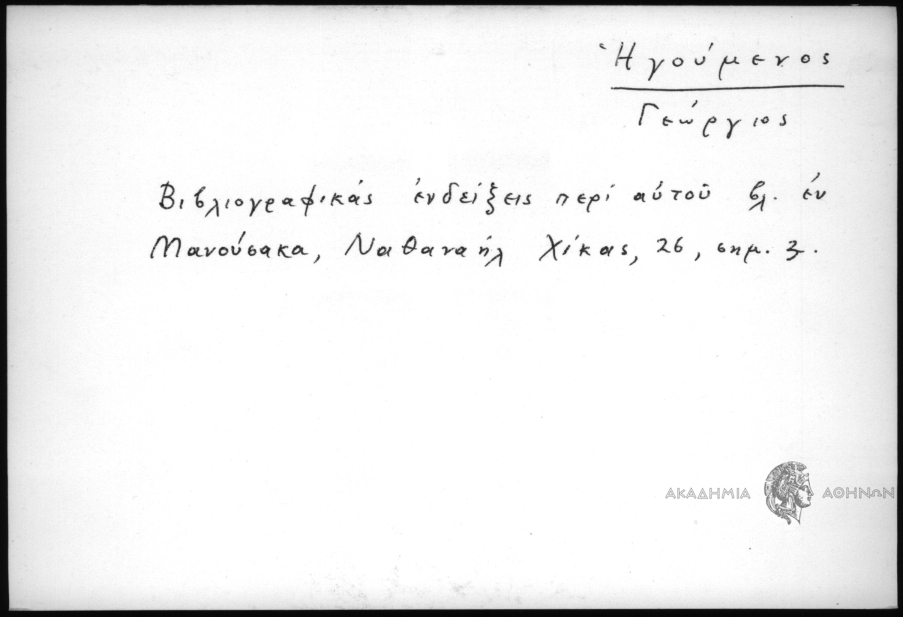 Ἡγούμενος
Γεώργιος
Βιβλιογραφικάς ἐνδείξεις περί αὐτοῦ βλ. ἐν
Μανούσακα, Ναθαναήλ Χίκας, 26, σημ. 3.
ΑΚΑΔΗΜΙΑ ΑΘΗΝΩΝ